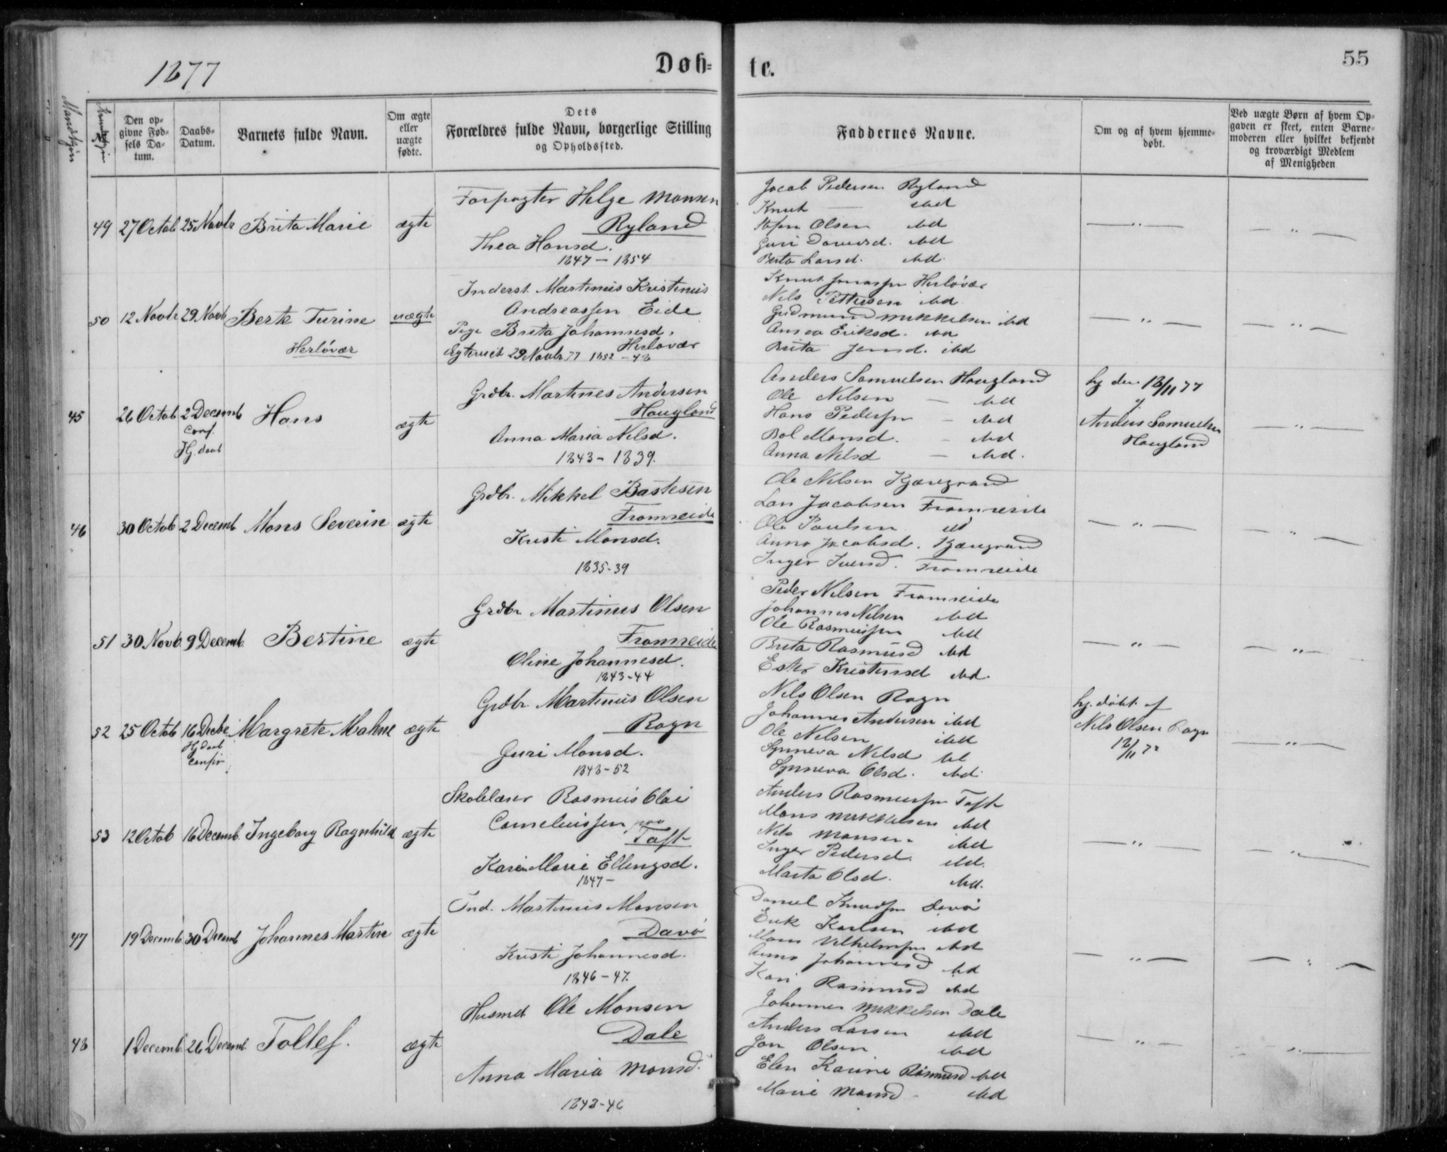 1877
Døb-
te.
55
Mandkjøn
Den op-
givne Fød-
sels Da-
tum.
Daabs-
Datum.
Barnets fulde Navn.
Om ægte
eller
uægte
fødte.
Dets
Forældres fulde Navn, borgerlige Stilling
og Opholdssted.
Faddernes Navne.
Om og af hvem hjemme-
døbt.
Ved uægte Børn af hvem Op-
gaven er skeet, enten Barne-
moderen eller hvilket bekjendt
og troværdigt Medlem
af Menigheden
49 27 Octob 25 Novbr Brita Marie ægte
Forpagter Helge Monsen
Ryland
Thea Hansd.
1847 – 1854
Jacob Pedersen Ryland
Knut — ibid
Olsen ibd
Guri ibd
Berta Larsd. ibd.
50 12 Novbr 29 Novb Berte Turine uægte
Herløvær
Inderst Martinus Kristinus
Andreassen Eide
Pige Brita Johannesd.
Herløvær
Egteviet 29 Novbr 77 1852 – 48
Knut Herløvær
Nils ibd.
Gudmund Mikkelsen ibd
Anna Eriksd. ibd
Brita Jensd. ibd
45 26 Octob 2 Decemb Hans ægte
Conf.
Hj. daab
Grdbr. Martines Andersen
Haugland
Anna Maria Nilsd.
1843 – 1839.
Anders Samuelsen Haugland
Ole Nilsen — ibd
Hans Pedersen — ibd
Bol Monsd. — ibd
Anna Nilsd — ibd.
hj den 18/11 77
af
Anders Samuelsen
Haugland
46 30 Octob 2 Decemb Mons Severin ægte
Grdbr. Mikkel Bastesen
Fromreide
Kristi Monsd.
1835-39
Ole Nilsen Kjæregrand
Lars Jacobsen Fromreide
Ole Paulsen
Anna Jacobsd. Kjæregrand
Inger Iversd. Fromreide
51 30 Novb 9 Decemb Bertine ægte
Grdbr Martinus Olsen
Fromreide
Oline Johannesd.
1843-44
Peder Nilsen Fromreide
Johannes Nilsen ibd
Ole Rasmussen ibd
Brita Rasmusd ibd
Ester Kristensd ibd.
52 25 Octob 16 Decbr Margrete Malene ægte
Hj daab
Confir.
Grdbr. Martinus Olsen
Rogn
Guri Monsd.
1848-52
Nils Olsen Rogn
Johannes Andersen ibd
Ole Nilsen ibd
Synneva Nilsd ibd
Synneva Olsd. ibd.
hj. døbt af
Nils Olsen Rogn
18/11 77
53 12 Octob 16 Decemb Ingeborg Ragnhild ægte
Skolelærer Rasmus Olai
Corneliussen paa
Toft
Karen Marie Ellingsd.
1847 –
Anders Rasmussen Toft
Mons Mikkelsen ibd
Nils Monsen ibd
Inger Pedersd. ibd.
Marta Olsd. ibd.
47 19 Decemb 30 Decemb Johannes Martin ægte
Ind. Martinus Monsen
Davø
Kristi Johannesd.
1846 – 47.
Daniel Knudsen Davø
Erik Karlsen ibd
Mons Vilhelmsen ibd
Anna Johannesd ibd
Kari Rasmusd ibd
48 1 Decemb 26 Decemb Tollef. ægte
Husmd Ole Monsen
Dale
Anna Maria Monsd.
1848-46
Johannes Mikkelsen Dale
Anders Larsen ibd
Jon Olsen ibd
Elen Karine Rasmusd ibd
Marie Monsd. ibd